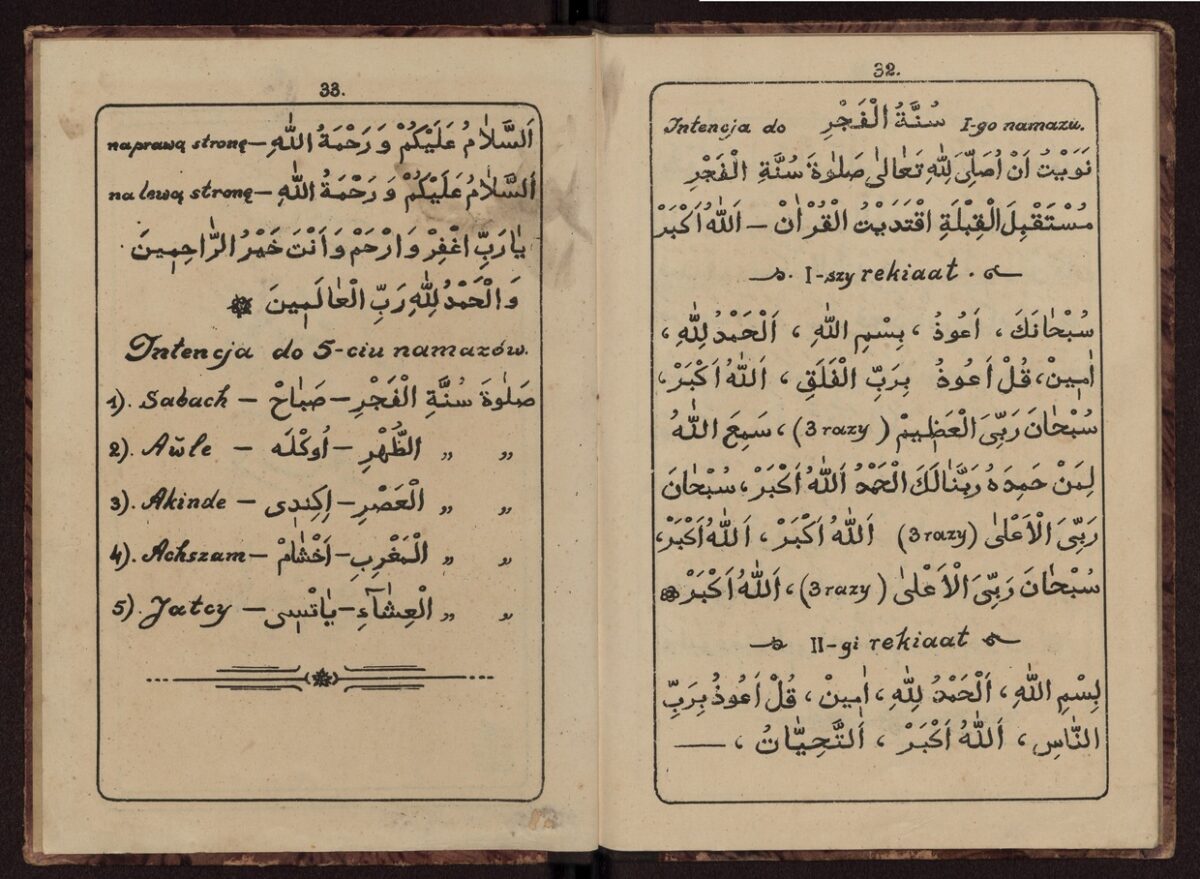 32.
Intencja do سُنَّةُ الْفَجْرِ I-go namazu.
نَوَيْتُ اَنْ اُصَلِّىَ لِلّٰهِ تَعَالٰى صَلٰوةَ سُنَّةِ الْفَجْرِ
مُسْتَقْبِلَ الْقِبْلَةِ اقْتَدَيْتُ الْقُرْاٰنْ — اَللّٰهُ اَكْبَرْ
I-szy rekiaat
سُبْحَانَكَ ، اَعُوذُ ، بِسْمِ اللّٰهِ ، اَلْحَمْدُ لِلّٰهِ ،
اٰمِينْ، قُلْ اَعُوذُ بِرَبِّ الْفَلَقِ ، اَللّٰهُ اَكْبَرْ،
سُبْحَانَ رَبِّىَ الْعَظِيمْ (3 razy) ، سَمِعَ اللّٰهُ
لِمَنْ حَمِدَهُ رَبَّنَا لَكَ الْحَمْدُ اَللّٰهُ اَكْبَرْ، سُبْحَانَ
رَبِّىَ الْاَعْلٰى (3 razy) اَللّٰهُ اَكْبَرْ ، اَللّٰهُ اَكْبَرْ،
سُبْحَانَ رَبِّىَ الْاَعْلٰى (3 razy) ، اَللّٰهُ اَكْبَرْ
II-gi rekiaat
بِسْمِ اللّٰهِ ، اَلْحَمْدُ لِلّٰهِ ، اٰمِينْ ، قُلْ اَعُوذُ بِرَبِّ
النَّاسِ ، اَللّٰهُ اَكْبَرْ ، اَلتَّحِيَّاتُ ، —
33.
na prawą stronę — اَلسَّلَامُ عَلَيْكُمْ وَ رَحْمَةُ اللّٰهِ
na lewą stronę — اَلسَّلَامُ عَلَيْكُمْ وَ رَحْمَةُ اللّٰهِ
يَا رَبِّ اغْفِرْ وَارْحَمْ وَاَنْتَ خَيْرُ الرَّاحِمِينَ
وَالْحَمْدُ لِلّٰهِ رَبِّ الْعَالَمِينَ
Intencja do 5-ciu namazów.
1). Sabach — صَلٰوةَ سُنَّةِ الْفَجْرِ — صَبَاحْ
2). Awłe — „ „ الظُّهْرِ — اُوكْلَه
3). Akinde — „ „ الْعَصْرِ — اِكِنْدِى
4). Achszam — „ „ الْمَغْرِبِ — اَخْشَامْ
5). Jatcy — „ „ الْعِشَآءِ — يَاتْسِى